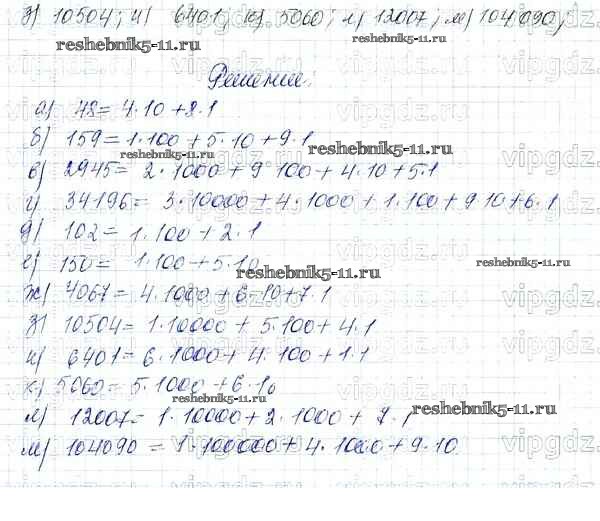 з) 10504; и) 6401; к) 5060; л) 12007; м) 104090;
reshebnik5-11.ru
Решение.
а) 48=4·10+8·1
б) 159=1·100+5·10+9·1
reshebnik5-11.ru
reshebnik5-11.ru
в) 2945=2·1000+9·100+4·10+5·1
г) 34196=3·10000+4·1000+1·100+9·10+6·1
д) 102=1·100+2·1
е) 150=1·100+5·10
reshebnik5-11.ru
reshebnik5-11.ru
ж) 4067=4·1000+6·10+7·1
з) 10504=1·10000+5·100+4·1
и) 6401=6·1000+4·100+1·1
к) 5060=5·1000+6·10
л) 12007=1·10000+2·1000+7·1
reshebnik5-11.ru
м) 104090=1·100000+4·1000+9·10
vipgdz.com